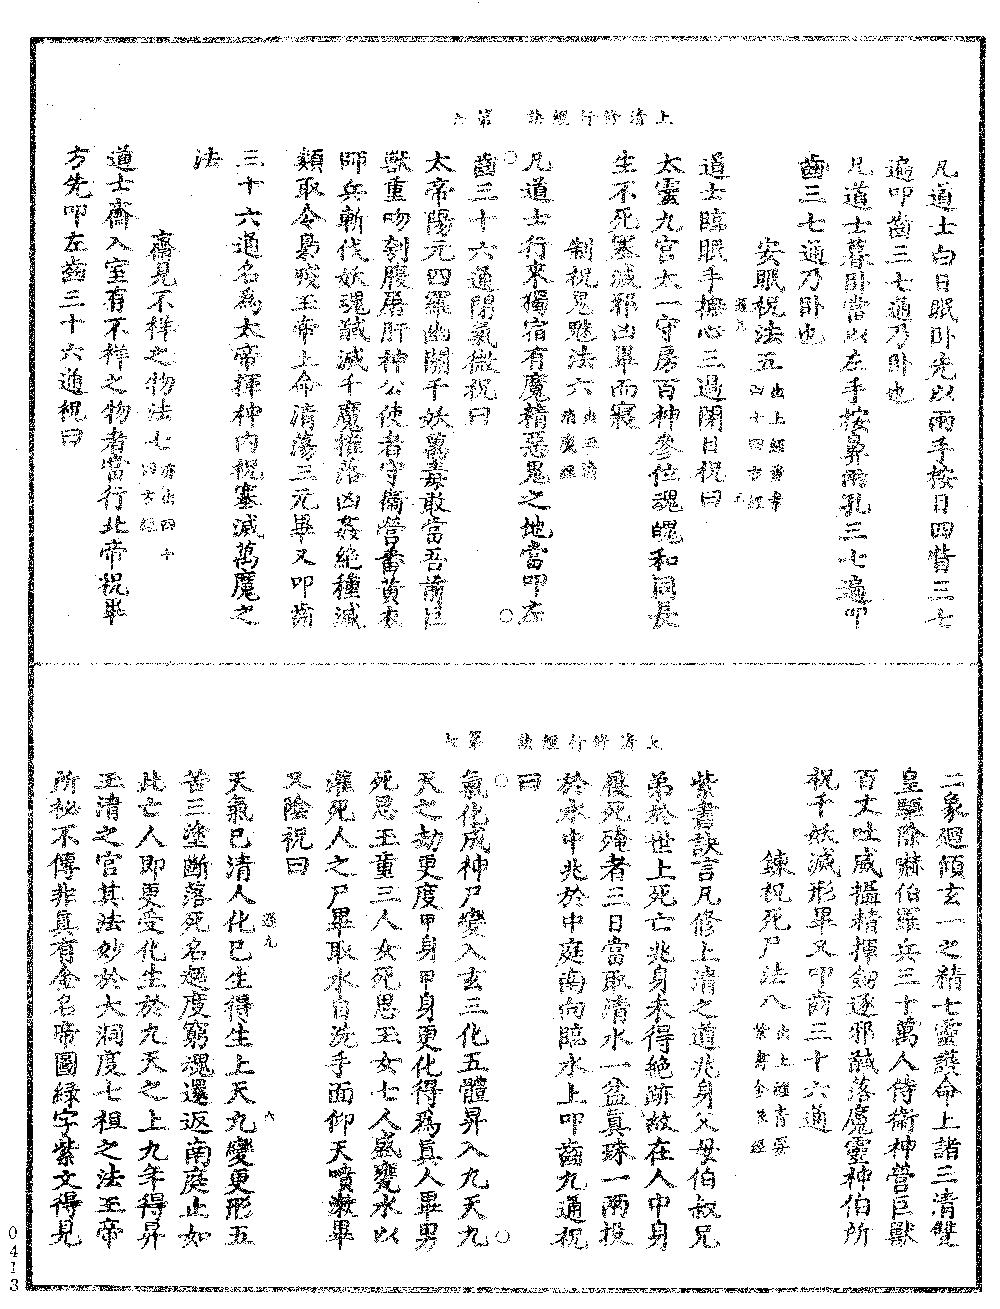 上清修行經訣 第七
凡道士白日眠卧先以兩手按目四眥三七
遍叩齒三七通乃卧也
凡道士暮卧當以左手按鼻兩孔三七遍叩
齒三七通乃卧也
安眠祝法五出上經靑要四十四方經
道士臨眠手撫心三過閉目祝曰
太靈九宮太一守房百神參位魂魄和同長
生不死塞滅邪凶畢而寢
制祝鬼魅法六出上清消魔經
凡道士行來獨宿有魔精惡鬼之地當叩左
齒三十六通閉氣微祝曰
太帝陽元四羅幽關千妖萬毒敢當吾前巨
獸重吻刳腹屠肝神公使者守衛營蕃黃衣
師兵斬伐妖魂馘滅千魔摧落凶姦絶種滅
類取令梟殘玉帝上命清蕩三元畢又叩齒
三十六通名爲太帝揮神内祝塞滅萬魔之
法
齋見不祥之物法七亦出四十四方經
道士齋入室有不祥之物者當行北帝祝畢
方先叩左齒三十六通祝曰
上清修行經訣 第七
二象廻傾玄一之精七靈護命上詣三清雙
皇驅除赫伯羅兵三十萬人侍衛神營巨獸
百丈吐威攝精揮劒逐邪馘落魔靈神伯所
祝千妖滅形畢又叩齒三十六通
鍊祝死尸法八出上經青要紫書金根經
紫書訣言凡修上清之道兆身父母伯叔兄
弟於世上死亡兆身未得絶跡故在人中身
履死殗者三日當取清水一盆真珠一兩投
於水中兆於中庭南向臨水上叩齒九通祝
曰
氣化成神尸變入玄三化五體昇入九天九
天之劫更度甲身甲身更化得爲眞人畢男
死思玉童三人女死思玉女七人盛甕水以
灌死人之尸畢取水自洗手面仰天噴潄畢
又陰祝曰
天氣已清人化已生得生上天九變更形五
苦三塗斷落死名超度窮魂還返南庭止如
此亡人即更受化生於九天之上九年得昇
玉清之宮其法妙於大洞度七祖之法玉帝
所祕不傳非眞有金名帝圖緑字紫文得見
0413